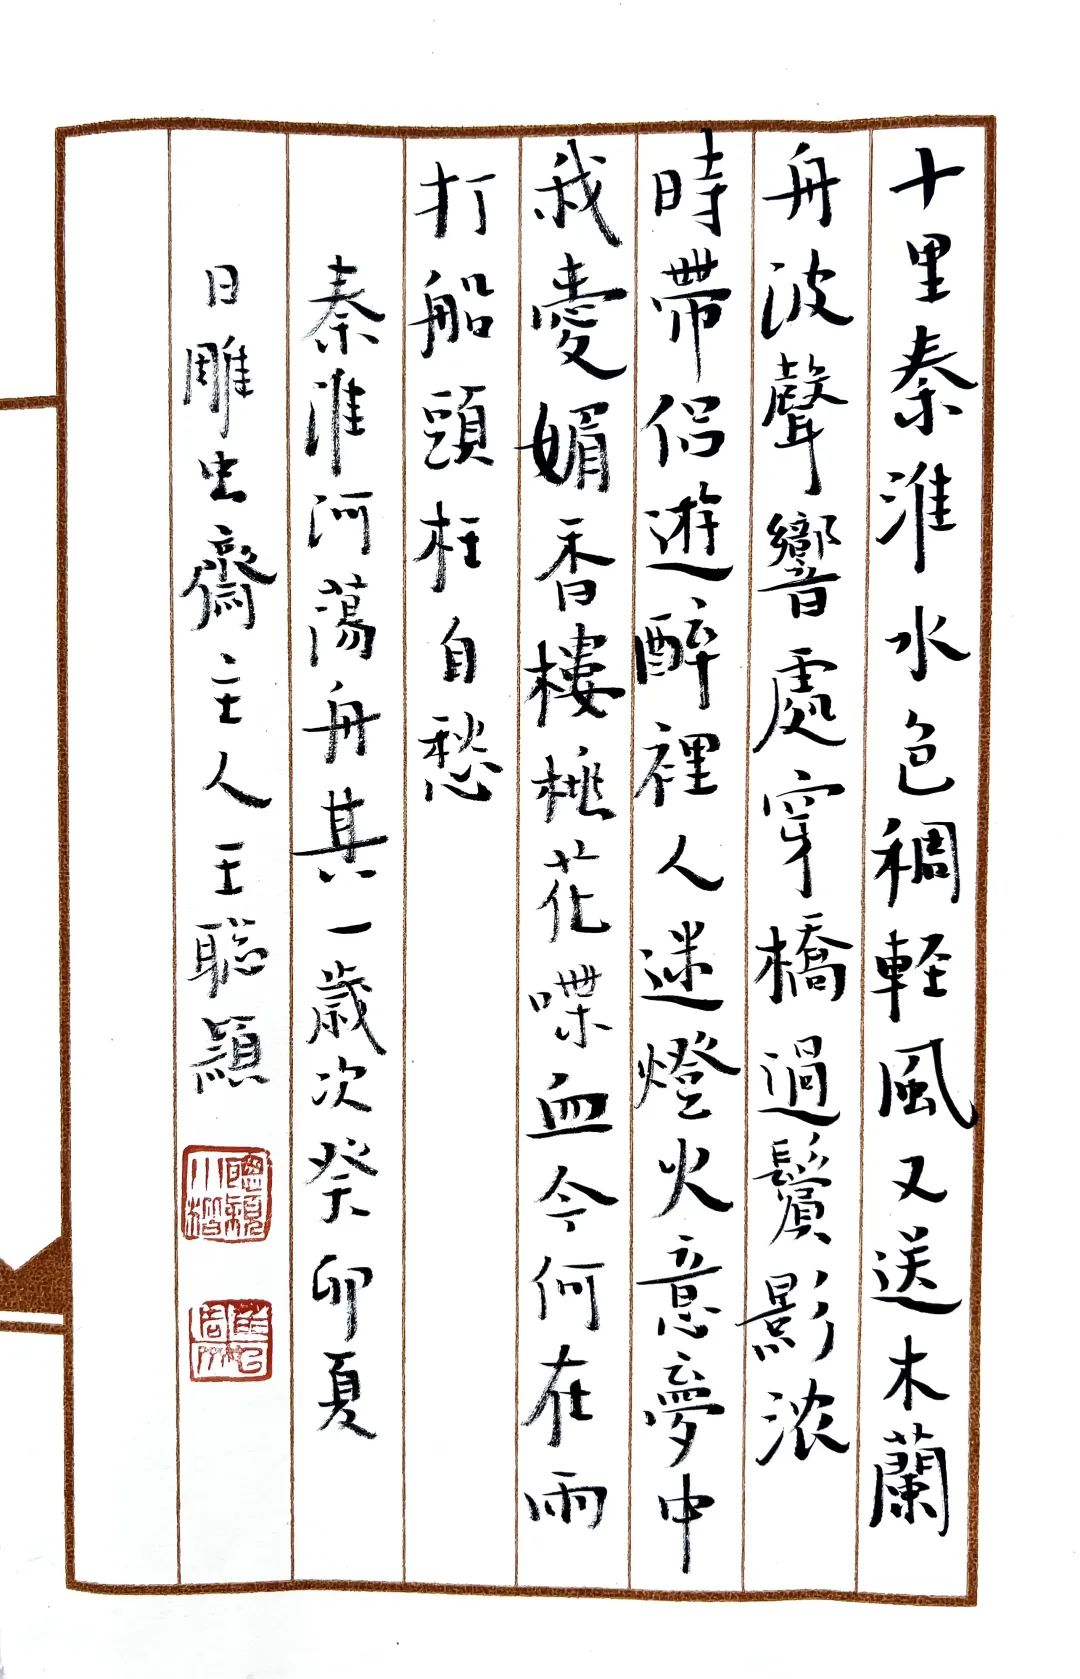 十里秦淮水色稠輕風又送木蘭
舟波聲響處穿橋過鬢影浓
時帶侣遊醉裡人迷燈火意夢中
我愛媚香樓桃花喋血今何在雨
打船頭枉自愁
秦淮河蕩舟其一歲次癸卯夏
日雕虫齋主人王聪穎
聰穎小楷